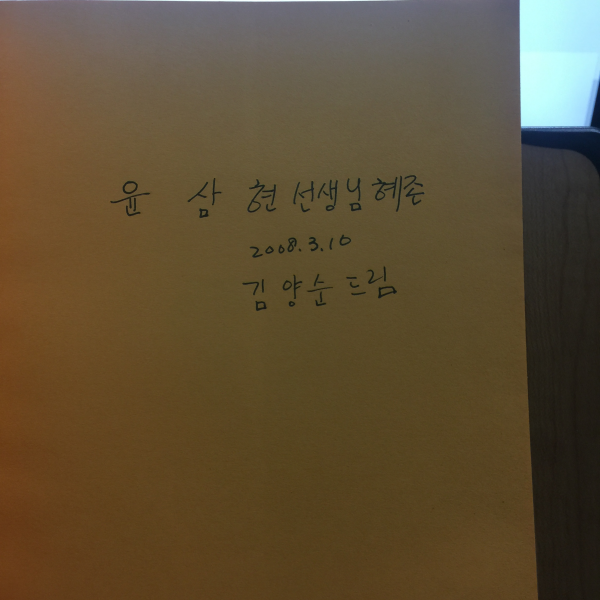 윤 삼 현 선생님 혜존
2008.3.10
김 양 순 드림